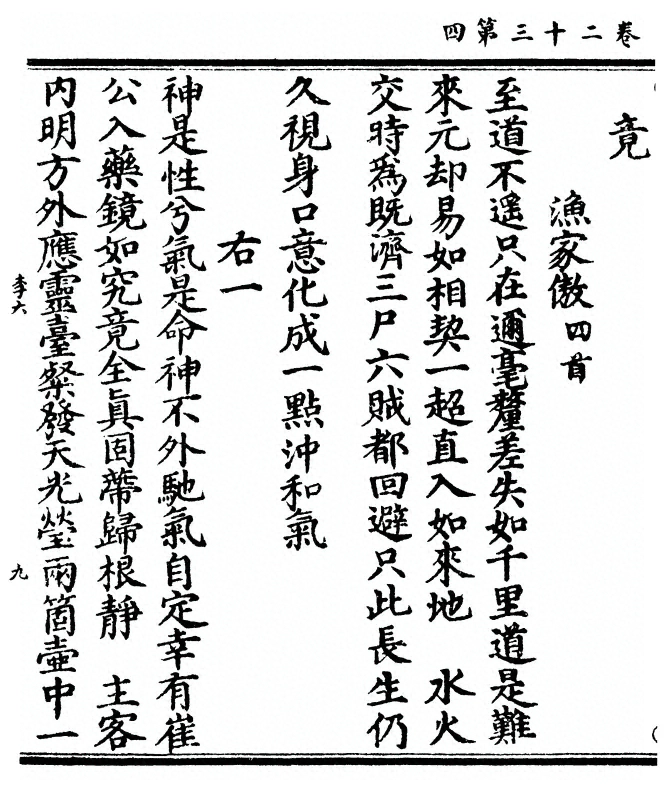 四第三十二卷
竟
漁家傲四首
至道不遙只在邇毫釐差失如千里道是難
來元却易如相契一超直入如來地　水火
交時爲既濟三尸六賊都回避只此長生仍
久視身口意化成一點沖和氣
右一
神是性兮氣是命神不外馳氣自定幸有崔
公入藥鏡如究竟全眞固蔕歸根靜　主客
內明方外應靈臺粲發天光瑩兩箇壺中一
李六
九